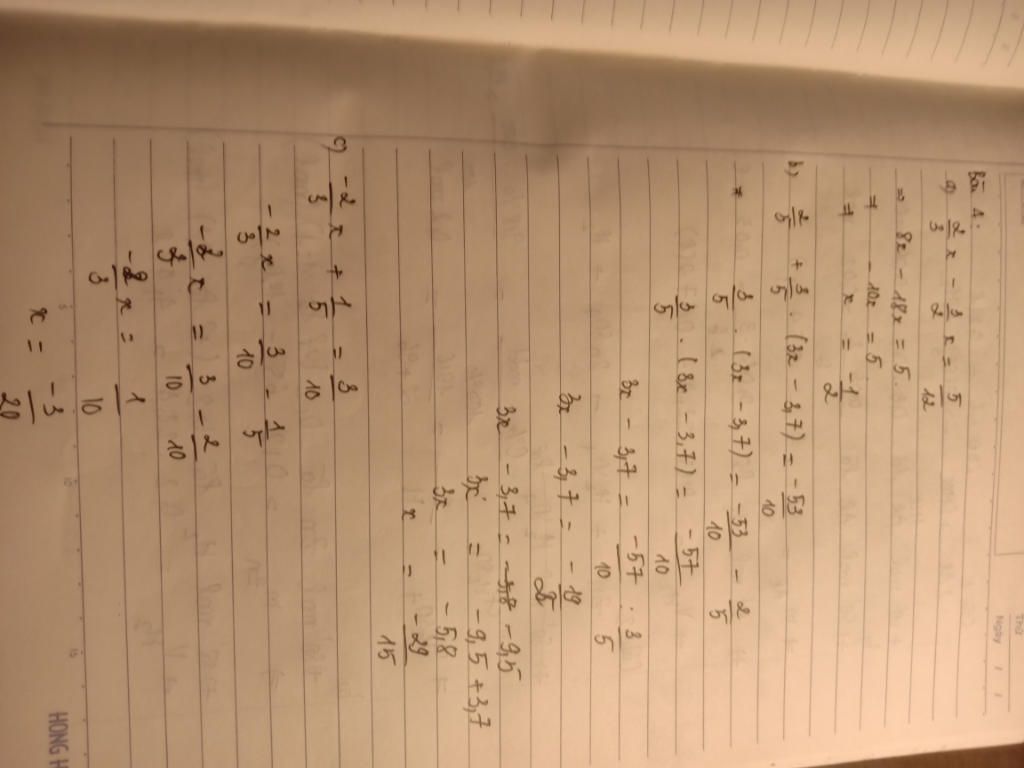 Bài 1.
a) 2/3 x - 3/2 x = 5/12
⇒ 8x - 18x = 5
⇒ -10x = 5
⇒ x = -1/2
b) 2/5 + 3/5 . (3x - 3,7) = -53/10
⇒ 3/5 . (3x - 3,7) = -53/10 - 2/5
3/5 . (3x - 3,7) = -57/10
3x - 3,7 = -57/10 . 3/5
3x - 3,7 = -19
3x - 3,7 = -9,5
3x = -9,5 + 3,7
3x = -5,8
x = -29/15
c) -2/3 x + 1/5 = 3/10
-2/3 x = 3/10 - 1/5
-2/3 x = 3/10 - 2/10
-2/3 x = 1/10
x = -3/20
HONG H